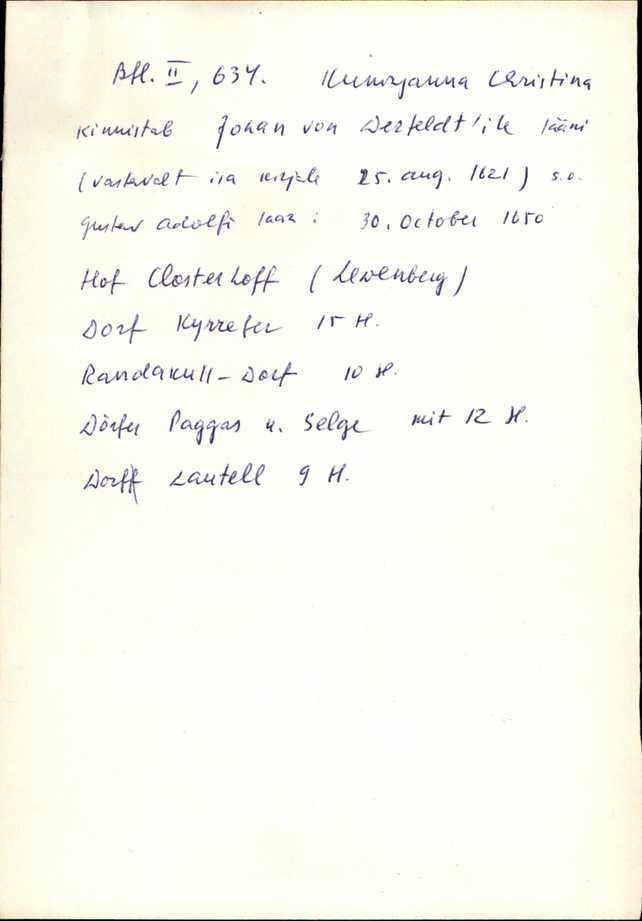 Bfl. II, 634. Kuninganna Christina
kinnistab Johan von Derfeldt'ile lääni
(vastavalt isa kirjale 25. aug. 1621) s.o.
Gustav Adolfi
30. October 1650
Hof Closterhoff (Lewenberg)
Dorf Kyrrefer 15 H.
Randakull-Dorf 10 H.
Dörfer Paggas u. Selge mit 12 H.
Dorff Lautell 9 H.